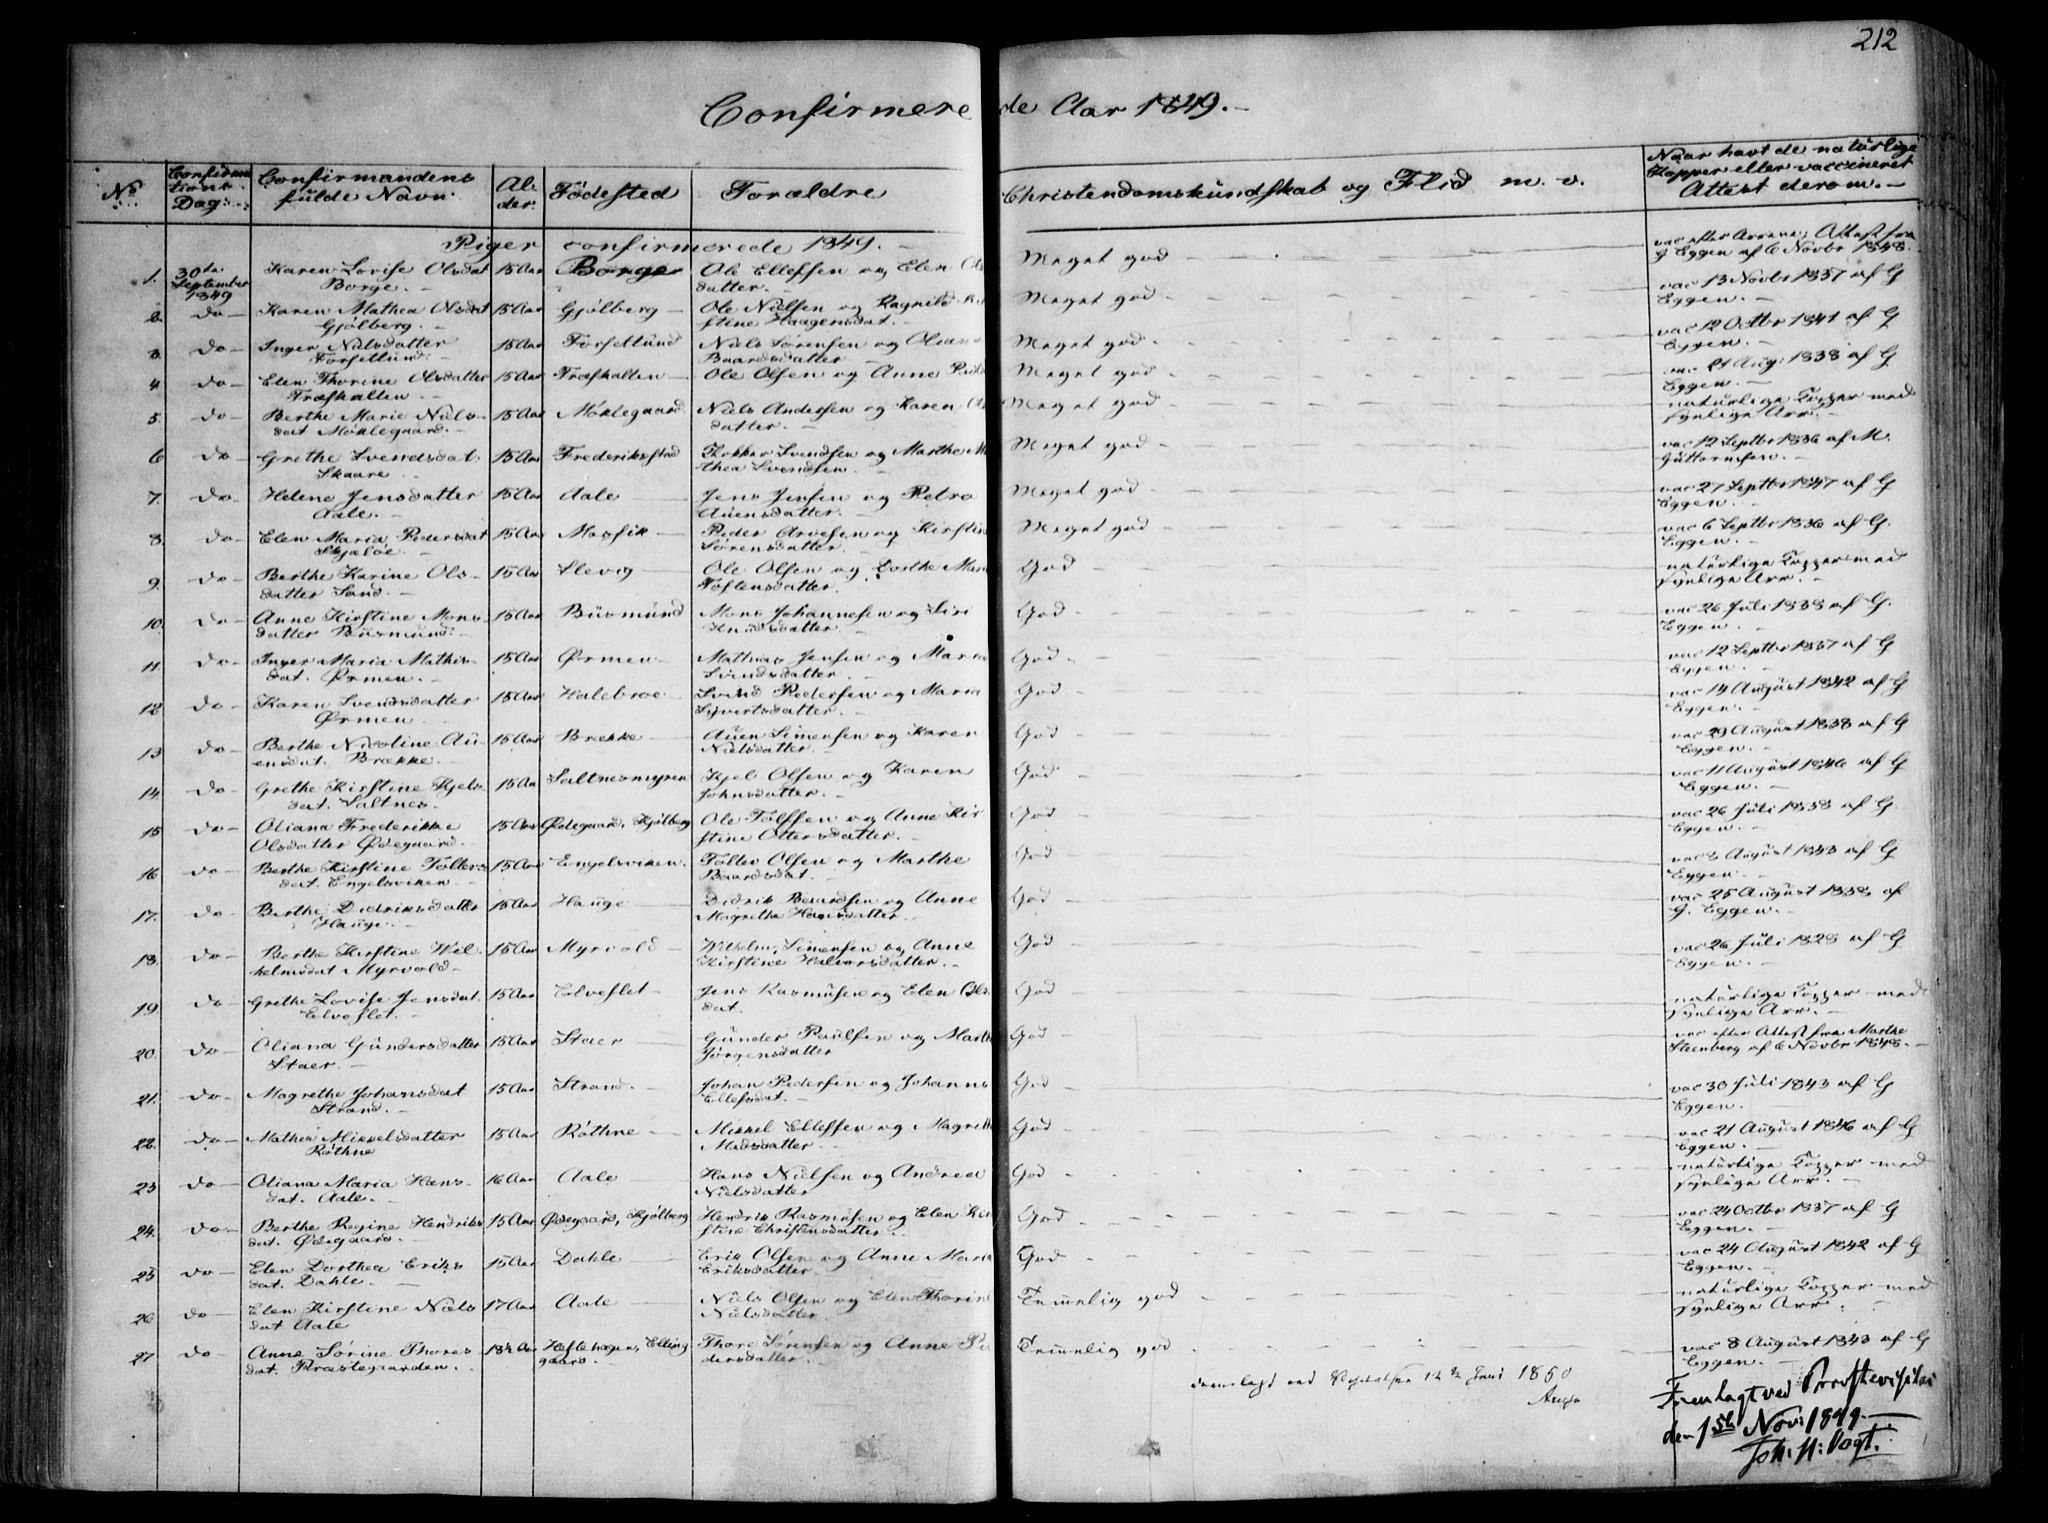 212
Confirmerede Aar 1849.-
No
Confirmations Dag.
Confirmandens fulde Navn.
Alder.
Fødested
Forældre
Christendomskundskab og Flid m. v.
Naar havt de naturlige Kopper eller vaccineret Attest derom.-
Piger confirmerede 1849.
1. 30te September 1849 Karen Lovise Olsdat 15 Aar Borge Ole Ellefsen og Elen Ols Meget god vac efter Attest fra
Borge.- datter.- G Eggen af 6 Novbr 1848.
2. do- Karen Mathea Olsdat 15 Aar Gjølberg- Ole Nielsen og Ragnild Kir Meget god- vac 13 Novbr 1837 af G
Gjølberg.- stine Haagensdat.- Eggen.-
3. do- Inger Nielsdatter 15 Aar Torsetlund Niels Sørensen og Oliana Meget god- vac 12 Octbr 1841 af G
Torsetlund.- Baardsdatter.- Eggen.-
4. do- Elen Thorine Olsdatter 15 Aar Træskalten- Ole Olsen og Anne Meget god- vac 21 Aug. 1838 af G
Træskalten.- Eggen.-
5. do- Berthe Marie Niels- 15 Aar Møklegaard Niels Andersen og Karen Meget god- naturlige Kopper med
dat Møklegaard.- datter.- synlige Arr.-
6. do- Grethe Svendsdat. 15 Aar Frederiksstad Svendsen og Marthe Ma Meget god- vac 12 Septbr 1836 af M.
Skaare.- thea Svendsen.- Guttormsen.-
7. do- Helene Jensdatter 15 Aar Aale- Jens Jensen og Petra Meget god- vac 27 Septbr 1847 af G
Aale.- Auensdatter.- Eggen.-
8. do- Elen Maria Pedersdat 15 Aar Mosvik- Peder Arvesen og Kirstine Meget god- vac 6 Septbr 1836 af G.
Skjæløe.- Sørensdatter.- Eggen.-
9. do- Berthe Karine Ols- 15 Aar Slevig- Ole Olsen og Dorthe Mari God- naturlige Kopper med
datter Sand.- Tostensdatter.- synlige Arr.-
10. do- Anne Kirstine Mons- 15 Aar Busmund Mons Johannesen og Siri God- vac 26 Juli 1838 af G.
datter Busmund.- Knudsdatter.- Eggen.-
11. do- Inger Maria Mathis- 15 Aar Ørmen- Mathias Jensen og Maria God- vac 12 Septbr 1837 af G
dat. Ørmen.- Svendsdatter.- Eggen.-
12 do- Karen Svendsdatter 15 Aar Halebroe- Svend Pedersen og Maria God- vac 14 August 1842 af G
Ørmen.- Syvertsdatter.- Eggen.-
13 do- Berthe Nicoline Au- 15 Aar Brække- Auen Simensen og Karen God- vac 29 August 1838 af G
ensdat. Brække.- Nielsdatter.- Eggen.-
14. do- Grethe Kirstine Kjels- 15 Aar Saltnesmyren Kjel Olsen og Karen God- vac 11 August 1846 af G
dat. Saltnes- Johnsdatter.- Eggen.-
15 do- Oliana Frederikke 15 Aar Ødegaard, Kjølberg Ole Tolfsen og Anne Kir God- vac 26 Juli 1838 af G.
Olsdatter Ødegaard. stine Ottersdatter.- Eggen.-
16 do- Berthe Kirstine Tollevs 15 Aar Engelsviken. Tollev Olsen og Marthe God- vac 8 August 1843 af G
dat. Engelsviken.- Baardsdat.- Eggen.-
17. do- Berthe Didriksdatter 15 Aar Hauge- Didrik Baardsen og Anne God- vac 25 August 1838 af
Hauge.- Magrethe Hansdatter.- G. Eggen.-
18. do- Berthe Kirstine Wil- 15 Aar Myrvold- Wilhelm Simensen og Anne God- vac 26 Juli 1828 af G
helmsdat Myrvold- Kirstine Halvorsdatter.- Eggen.-
19. do- Grethe Lovise Jensdat. 15 Aar Elveflet- Jens Rasmusen og Elen Ols God- naturlige Kopper med
Elveflet.- dat. synlige Arr.-
20. do- Oliana Gundersdatter 15 Aar Staer- Gunder Paulsen og Marthe God- vac efter Attest fra Marthe
Staer.- Jørgensdatter Steenberg af 6 Novbr 1848.-
21. do- Magrethe Johansdat 15 Aar Strand.- Johan Pedersen og Johanne God- vac 30 Juli 1843 af G
Strand.- Ellefsdat.- Eggen.-
22. do- Mathea Mikkelsdatter 15 Aar Røthne- Mikkel Ellefsen og Magrethe God- vac 21 August 1846 af G
Røthne Madsdatter.- Eggen.-
23 do- Oliana Maria Hans- 16 Aar Aale- Hans Nielsen og Andrea God- naturlige Kopper med
dat. Aale.- Nielsdatter synlige Arr.-
24. do- Berthe Regine Hendriks 15 Aar Ødegaard, Kjølberg Hendrik Rasmusen og Elen Kir God- vac 24 Octbr 1837 af G
dat. Ødegaard.- stine Christensdatter.- Eggen.-
25 do- Elen Dorthea Eriks 15 Aar Dahle- Erik Olsen og Anne Maria God- vac 24 August 1842 af G
dat. Dahle.- Eriksdatter.- Eggen.-
26 do- Elen Kirstine Niels 17 Aar Aale- Niels Olsen og Elen Thorine Temmelig god- naturlige Kopper med
dat Aale Nielsdatter.- synlige Arr.-
27 do- Anne Sørine Thores 18½ Aar Elling Thore Sørensen og Anne Pe Temmelig god- vac 8 August 1843 af G
dat. Præstegaarden.- gaard.- dersdatter.- Eggen.-
fremlagt ved 12 Juni 1850
Fremlagt ved Provstevisitas
den 15de Nov: 1849.-
Joh: H: Vogt.